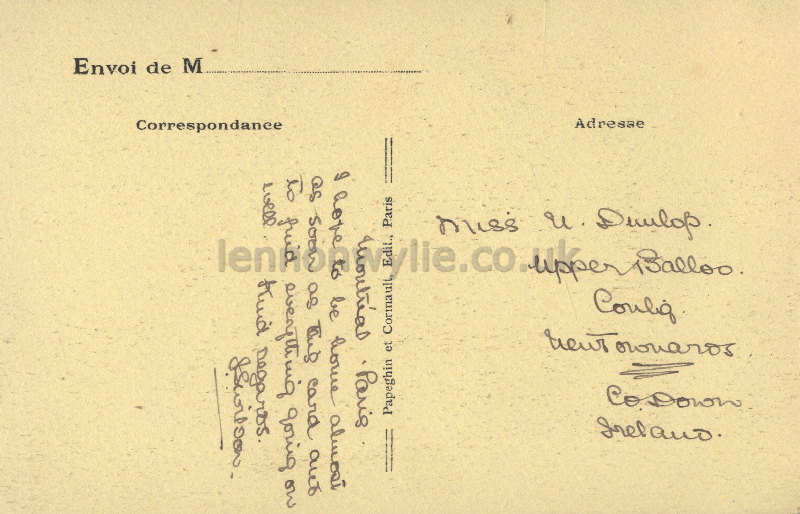 Envoi de M
Correspondance
Montreal. Paris.
I hope to be home almost
as soon as this card and
to find everything going on
well. Kind regards.
Papeghin et Cormault, Edit., Paris
Adresse
Miss U. Dunlop.
Upper Balloo.
Conlig.
Newtownards
Co. Down
Ireland.
lennonwylie.co.uk